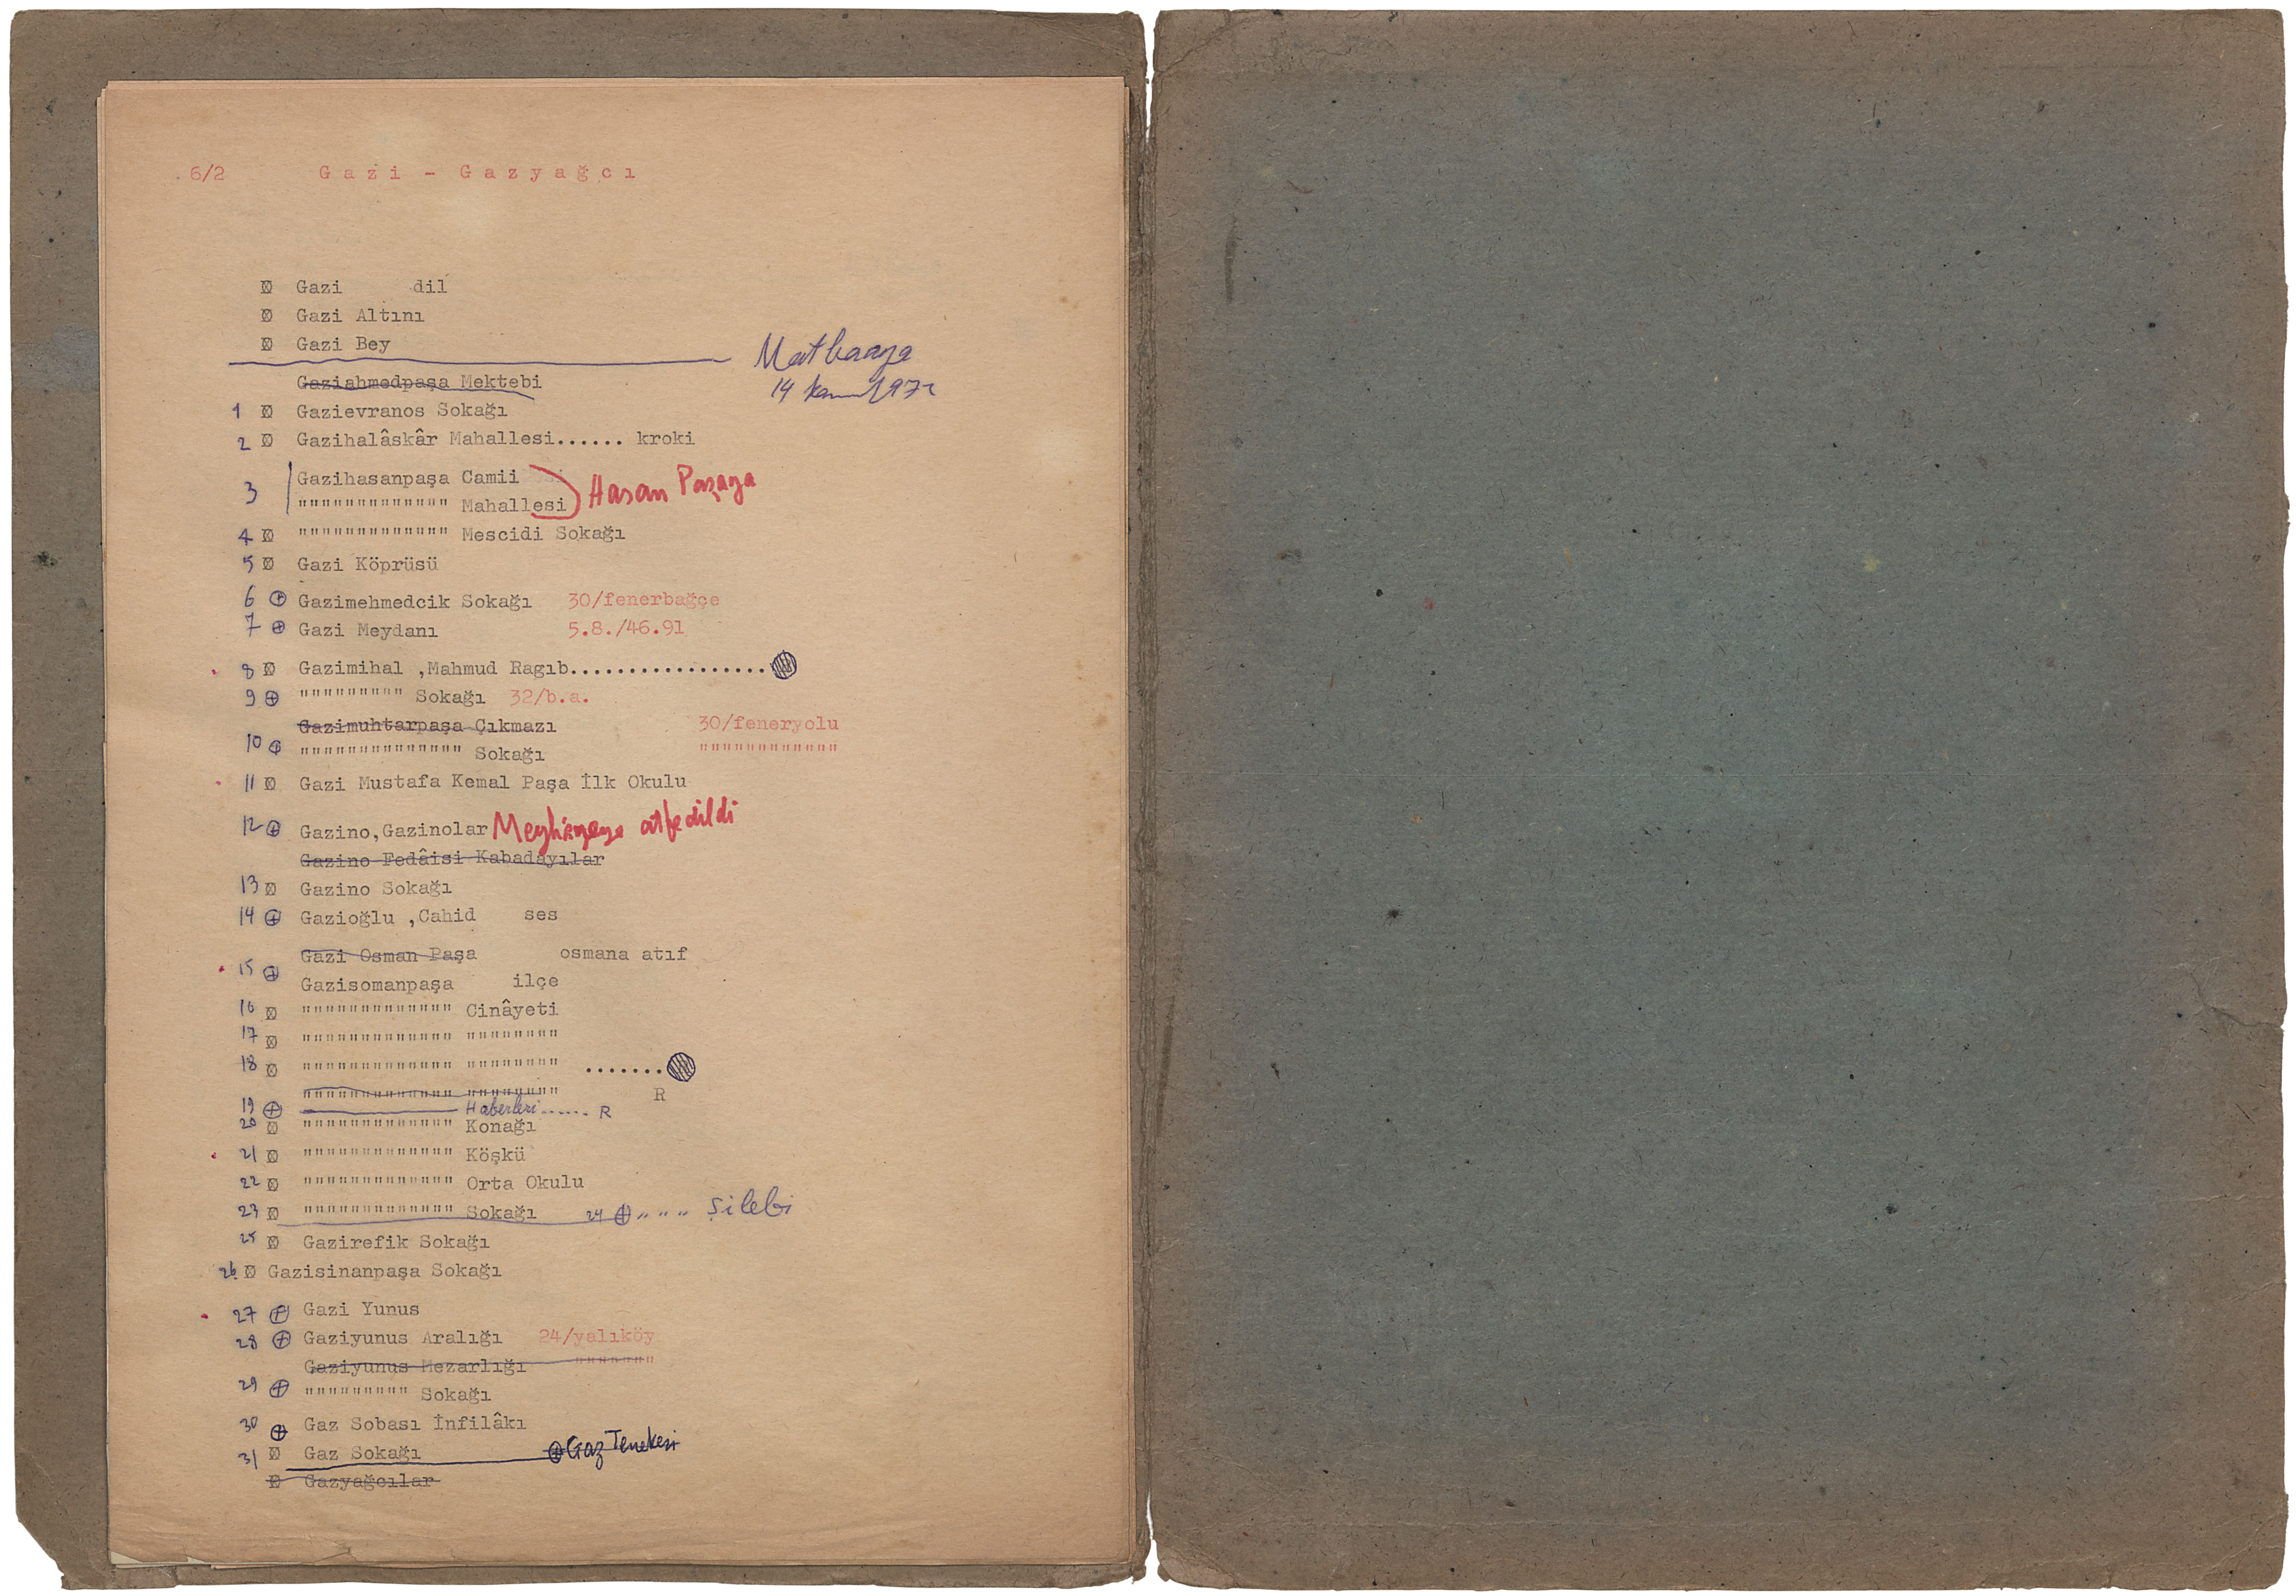 6/2 Gazi - Gazyağcı
Gazi dil
Gazi Altını
Gazi Bey
Matbaaya
14 1972
Gaziahmedpaşa Mektebi
1 Gazievranos Sokağı
2 Gazihalâskâr Mahallesi...... kroki
3 Gazihasanpaşa Camii
""""""""""""" Mahallesi Hasan Paşaya
4 """"""""""""" Mescidi Sokağı
5 Gazi Köprüsü
6 Gazimehmedcik Sokağı 30/fenerbağçe
7 Gazi Meydanı 5.8./46.91
8 Gazimihal ,Mahmud Ragıb.................
9 """"""""" Sokağı 32/b.a.
Gazimuhtarpaşa Çıkmazı 30/feneryolu
10 """""""""""""" Sokağı """"""""""""
11 Gazi Mustafa Kemal Paşa İlk Okulu
12 Gazino,Gazinolar Meyhaneye atfedildi
Gazino Fedâisi Kabadayılar
13 Gazino Sokağı
14 Gazioğlu ,Cahid ses
Gazi Osman Paşa osmana atıf
15 Gazisomanpaşa ilçe
16 """"""""""""" Cinâyeti
17 """"""""""""" """"""""
18 """"""""""""" """""""" .......
""""""""""""" """""""" R
19 Haberleri...... R
20 """"""""""""" Konağı
21 """"""""""""" Köşkü
22 """"""""""""" Orta Okulu
23 """"""""""""" Sokağı 24 " " " Şilebi
25 Gazirefik Sokağı
26 Gazisinanpaşa Sokağı
27 Gazi Yunus
28 Gaziyunus Aralığı 24/yalıköy
Gaziyunus Mezarlığı """""""
29 """"""""" Sokağı
30 Gaz Sobası İnfilâkı
31 Gaz Sokağı Gaz Tenekesi
Gazyağcılar